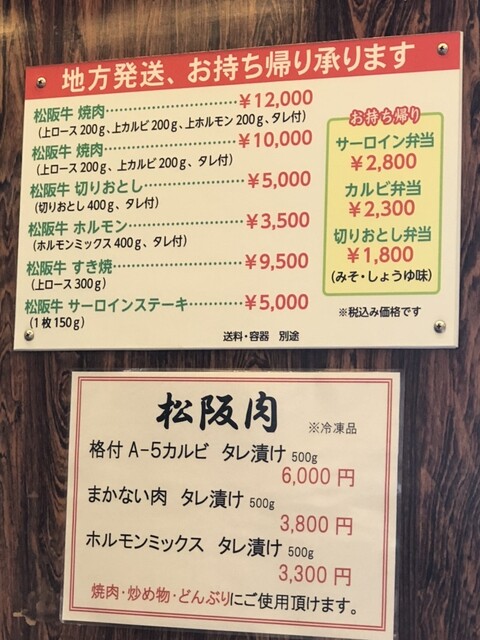 地方発送、お持ち帰り承ります
松阪牛 焼肉……………………¥12,000
(上ロース200g、上カルビ200g、上ホルモン200g、タレ付)
松阪牛 焼肉……………………¥10,000
(上ロース200g、上カルビ200g、タレ付)
松阪牛 切りおとし……………¥5,000
(切りおとし400g、タレ付)
松阪牛 ホルモン………………¥3,500
(ホルモンミックス400g、タレ付)
松阪牛 すき焼…………………¥9,500
(上ロース300g)
松阪牛 サーロインステーキ………¥5,000
(1枚150g)
送料・容器 別途
お持ち帰り
サーロイン弁当
¥2,800
カルビ弁当
¥2,300
切りおとし弁当
¥1,800
(みそ・しょうゆ味)
※税込み価格です
松阪肉 ※冷凍品
格付 A-5カルビ タレ漬け 500g
6,000 円
まかない肉 タレ漬け 500g
3,800 円
ホルモンミックス タレ漬け 500g
3,300 円
焼肉・炒め物・どんぶりにご使用頂けます。